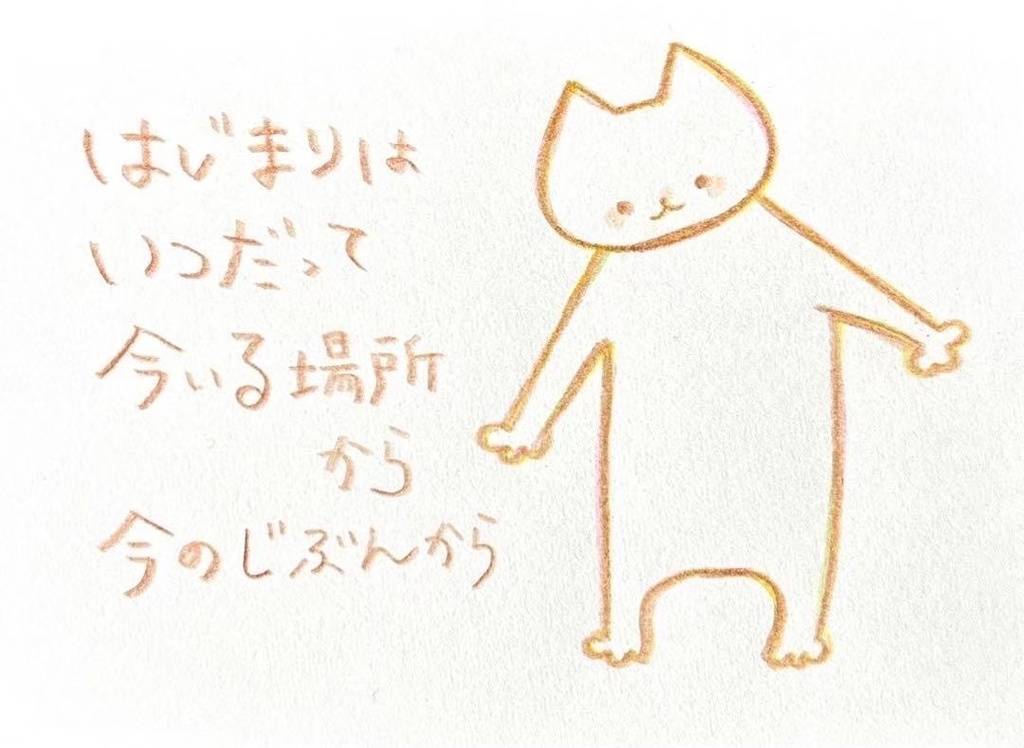 はじまりは
いつだって
今いる場所
から
今のじぶんから